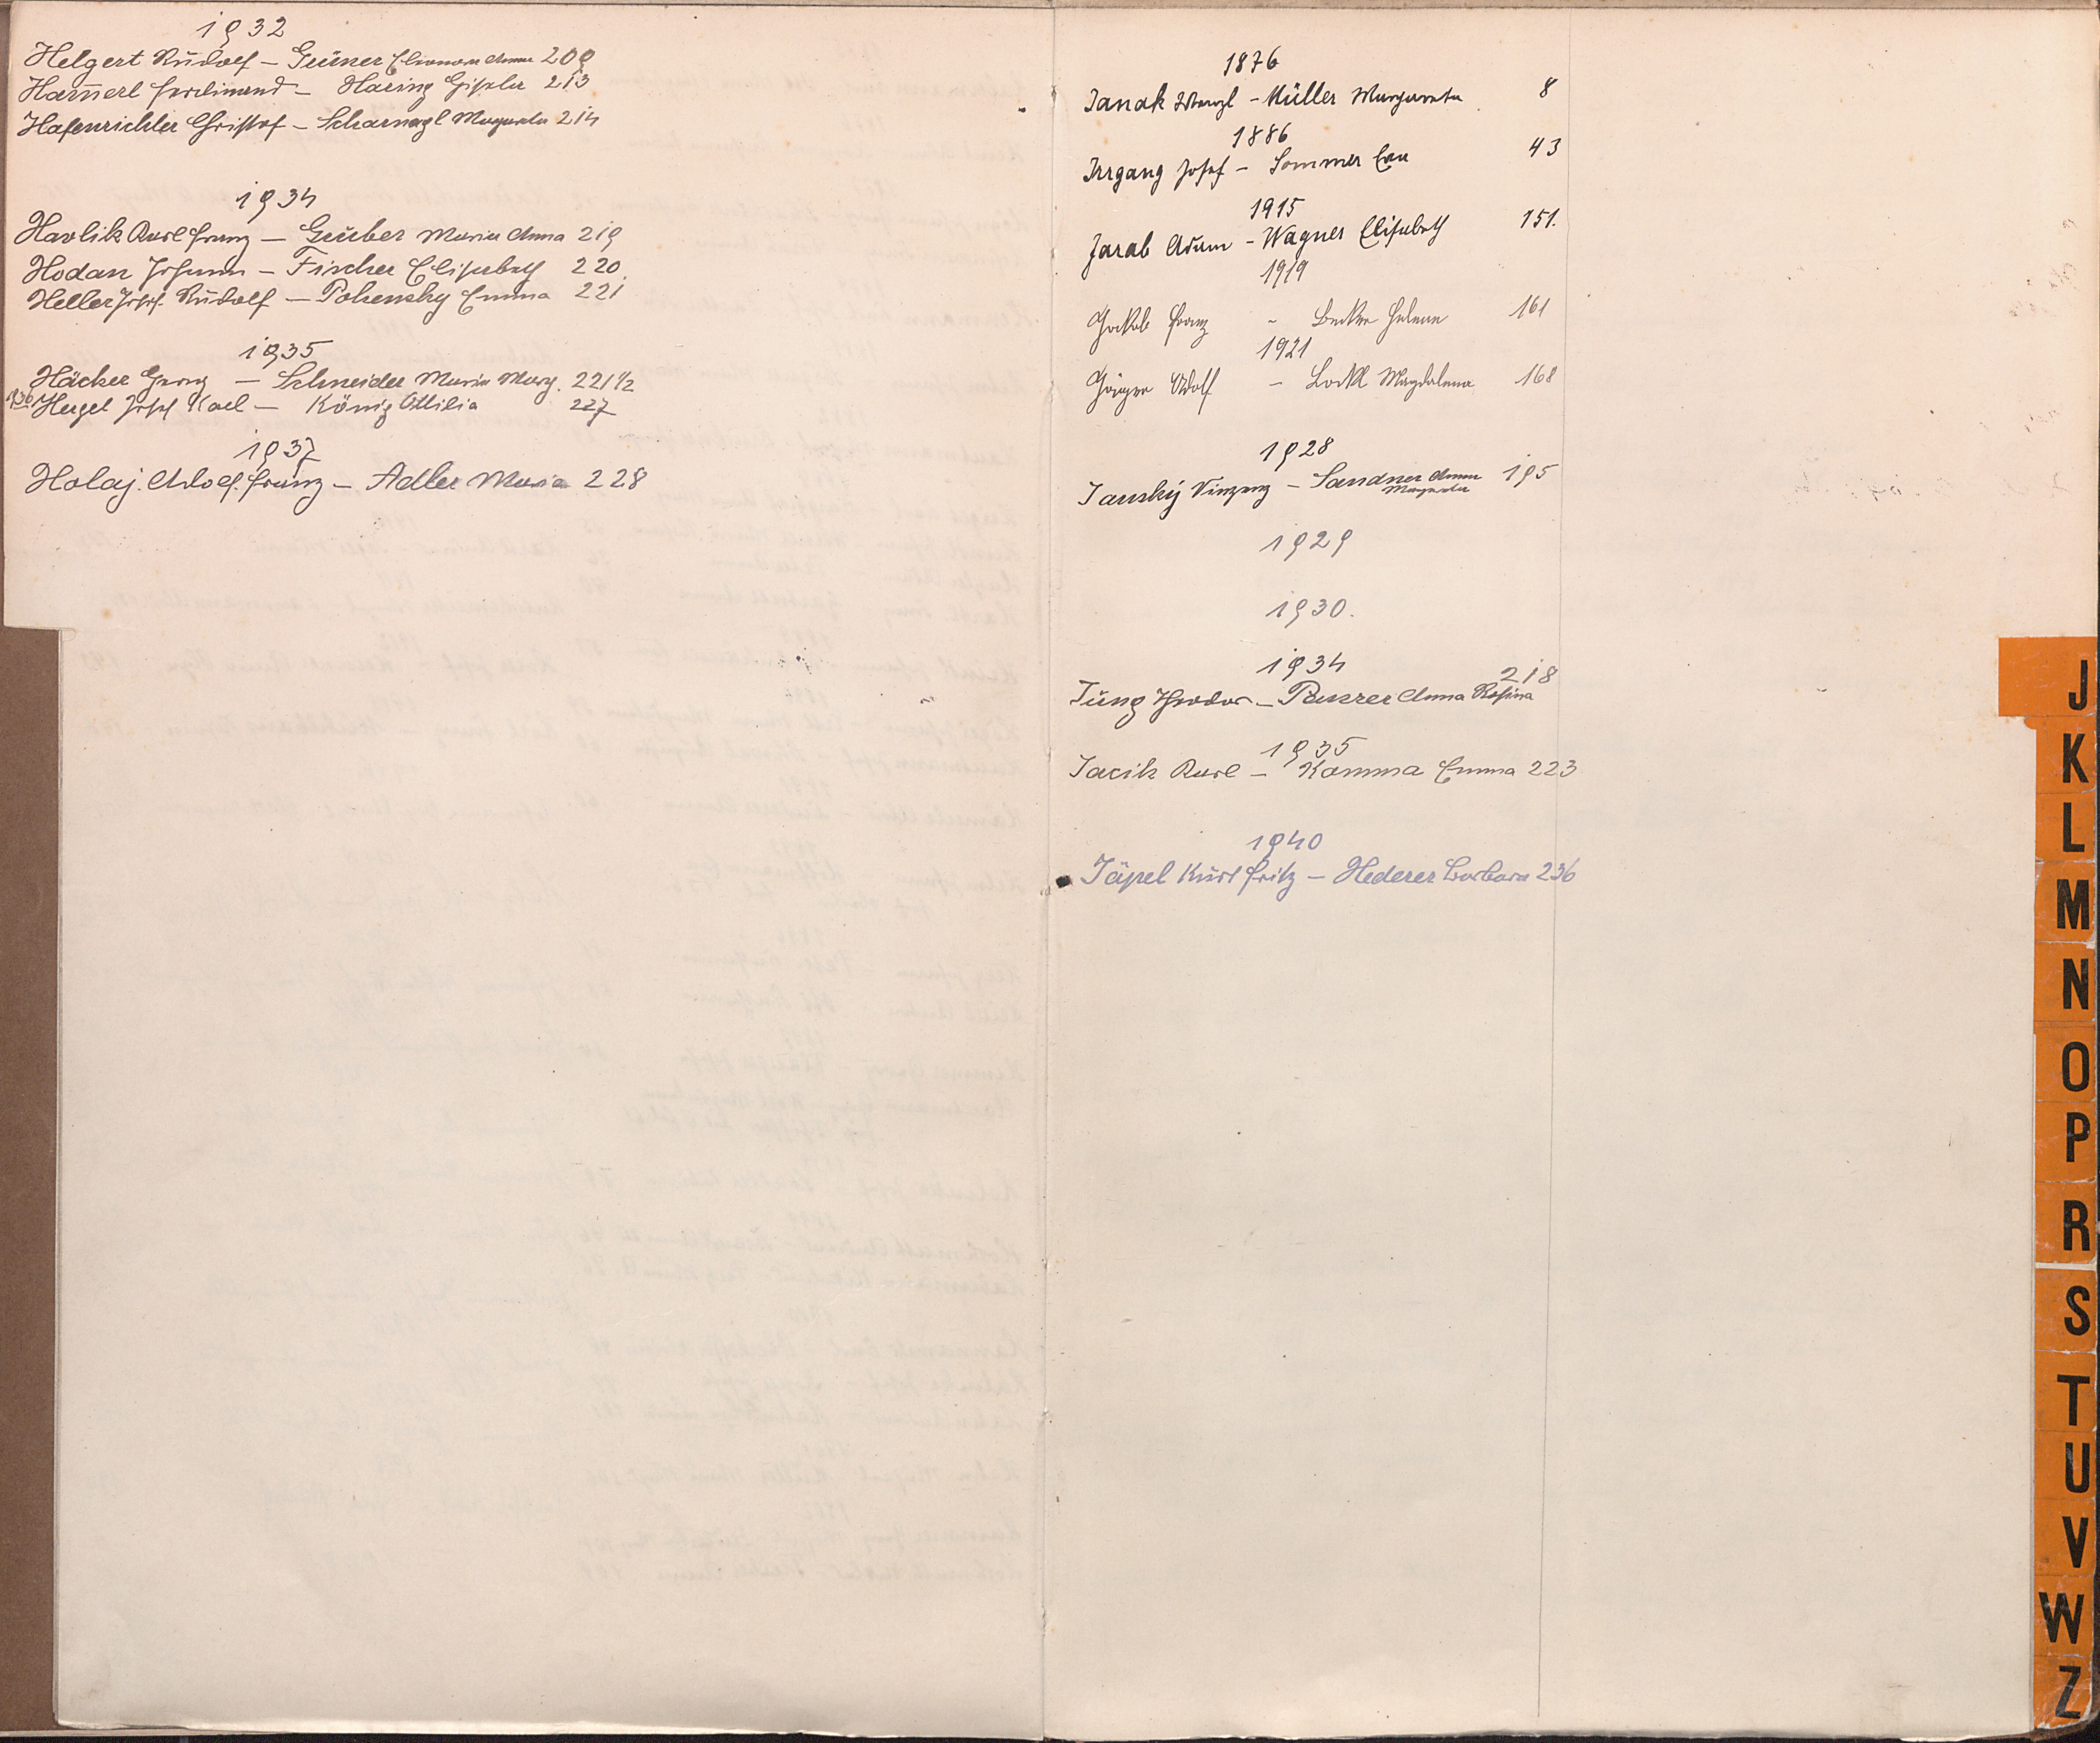 1932
Helgert Rudolf – Grüner Eleonora Anna 209
Hammerl Ferdinand – Haring Gisela 213
Hafenrichter Christof – Scharnagl Margareta 214
1934
Havlik Karl Franz – Gruber Maria Anna 219
Hodan Johann – Fischer Elisabeth 220.
Heller Josef Rudolf – Pohensky Emma 221
1935
Häcker Georg – Schneider Maria Marg. 221 1/2
1936 Hergel Josef Karl – König Ottilia 227
1937
Holaj Adolf Franz – Adler Maria 228
1876
Janak Wenzl – Müller Margareta 8
1886
Irrgang Josef – Sommer Eva 43
1915
Jarab Adam – Wagner Elisabeth 151.
1919
Jakob Franz – Becker Helene 161
1921
Jäger Adolf – Lockl Magdalena 168
1928
Janský Vinzenz – Sandner Anna Margareta 195
1929
1930.
1934
Jung Theodor – Panzer Anna Rosina 218
1935
Jacik Karl – Komma Emma 223
1940
Jäpel Kurt Fritz – Hederer Barbara 236
J
K
L
M
N
O
P
R
S
T
U
V
W
Z